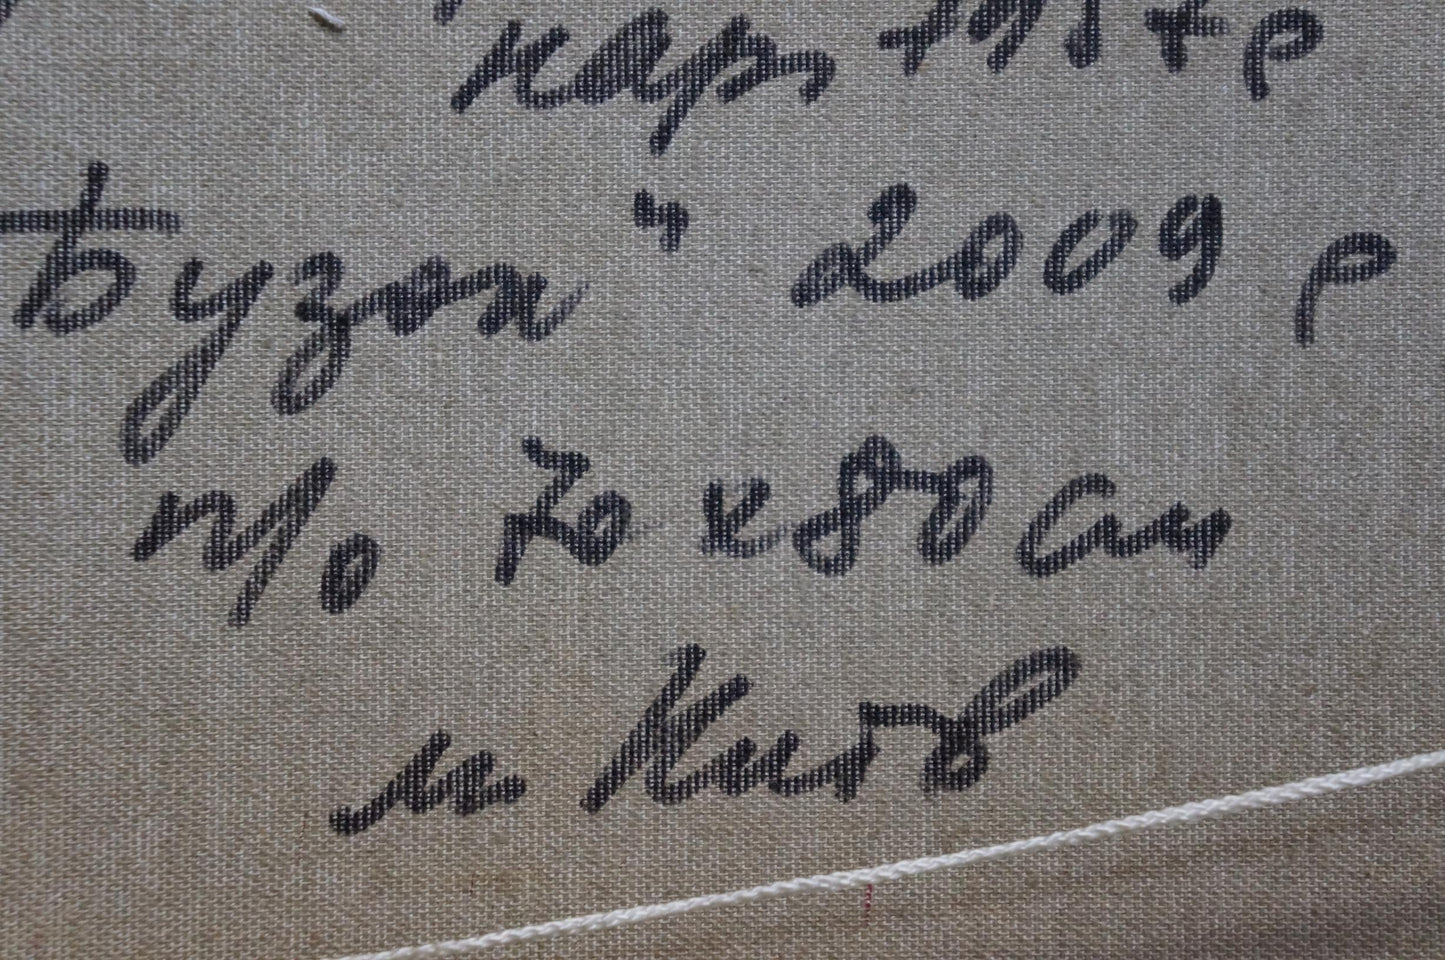 нар. 1957 р
Бузок" 2009 р
п/о 70 х 80 см
м Київ